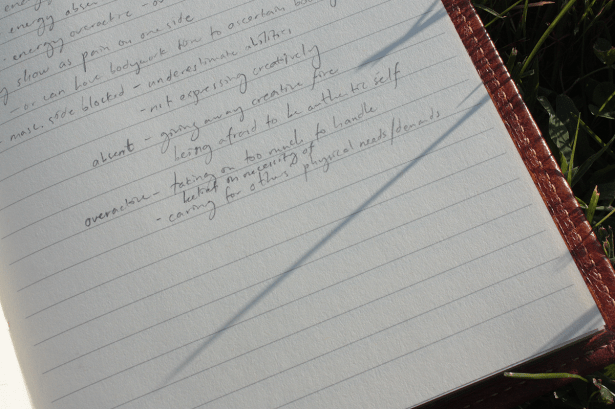 energy absen
· energy overactive - ov
y show as pain on one side
- or can have bodywork to ascertain
masc. side blocked - underestimate abilities
- not expressing creatively
absent - giving away creative fire
being afraid to be authentic self
overactive - taking on too much to handle
belief on necessity of
- caring for others physical needs/demands